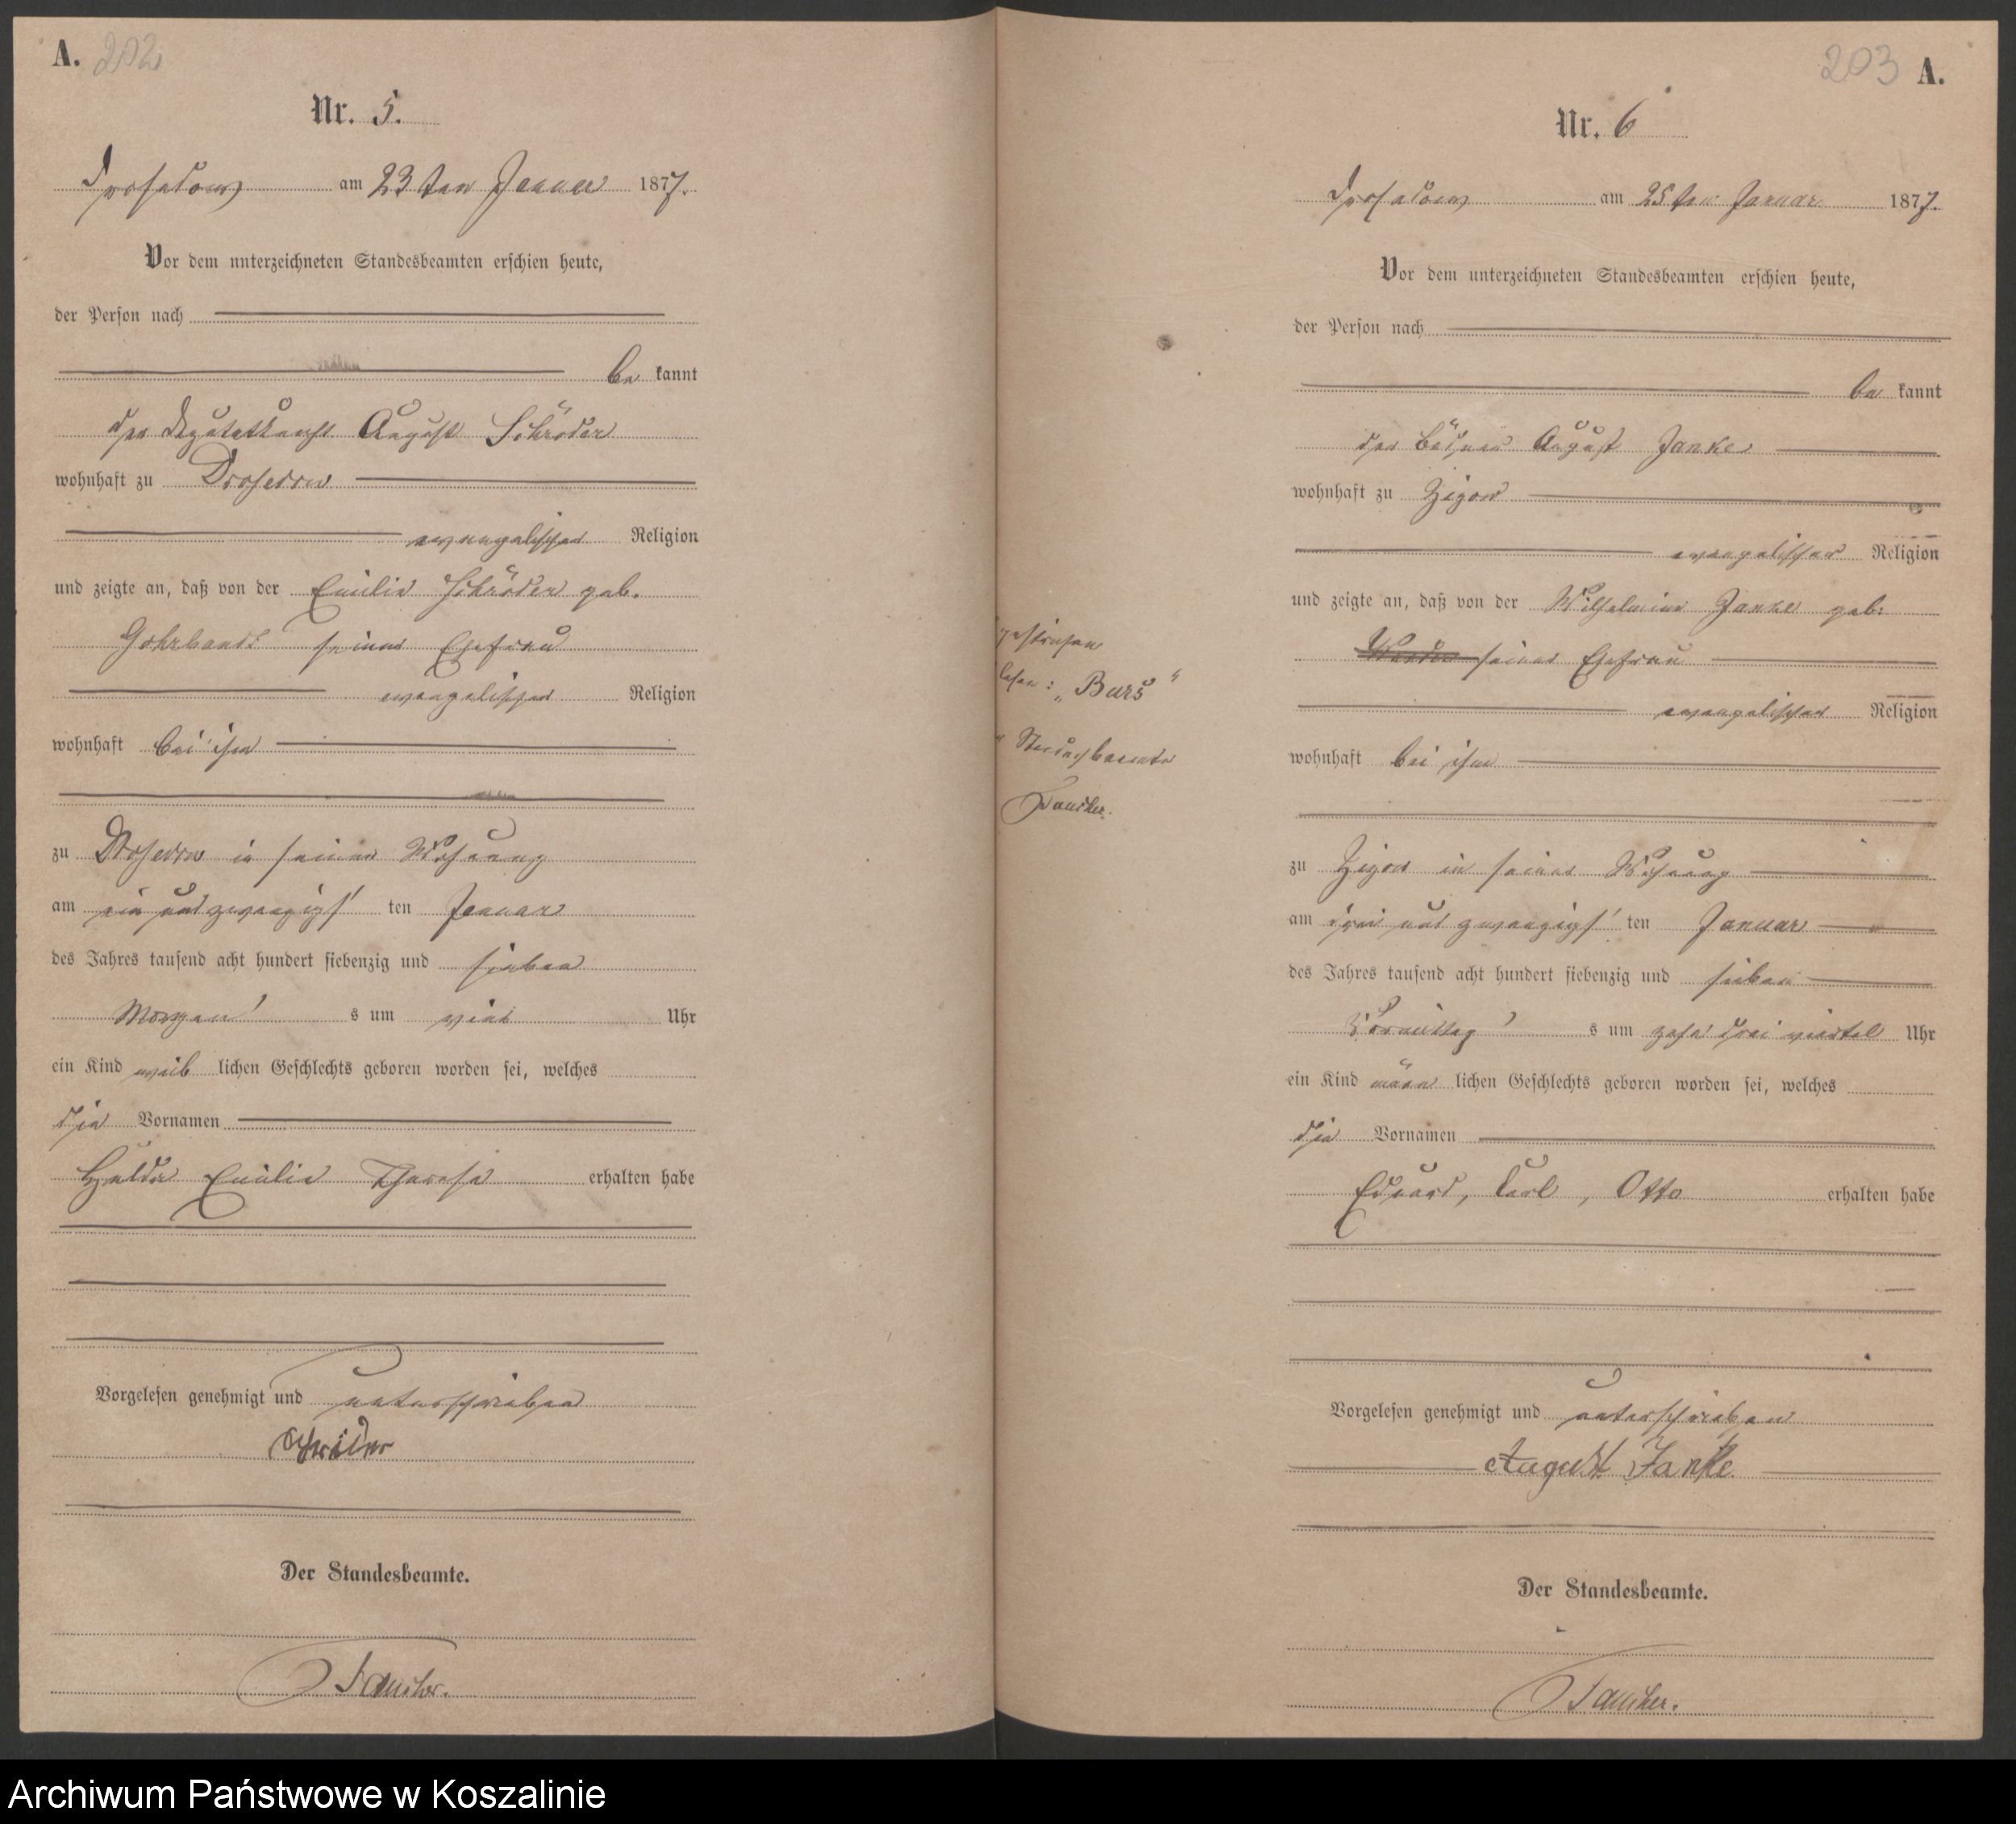 A. 202
Nr. 5.
Drosedow am 23ten Januar 1877.
Vor dem unterzeichneten Standesbeamten erschien heute,
der Person nach
be kannt
der Deputatknecht August Schröder
wohnhaft zu Drosedow
evangelischer Religion
und zeigte an, daß von der Emilie Schröder geb.
Gohrbandt seiner Ehefrau
evangelischer Religion
wohnhaft bei ihm
zu Drosedow in seiner Wohnung
am ein und zwanzigsten Januar
des Jahres tausend acht hundert siebenzig und sieben
Morgens um vier Uhr
ein Kind weiblichen Geschlechts geboren worden sei, welches
die Vornamen
Hulda Emilie Therese erhalten habe
Vorgelesen genehmigt und unterschrieben
Schröder
Der Standesbeamte.
203 A.
Nr. 6
Drosedow am 25ten Januar 1877.
Vor dem unterzeichneten Standesbeamten erschien heute,
der Person nach
be kannt
der Büdner August Janke
wohnhaft zu Zigow
evangelischer Religion
und zeigte an, daß von der Wilhelmine Janke geb:
seiner Ehefrau
evangelischer Religion
wohnhaft bei ihm
gestrichen
lesen: „Burs“
Standesbeamte
zu Zigow in seiner Wohnung
am drei und zwanzigsten Januar
des Jahres tausend acht hundert siebenzig und sieben
Vormittags um zehn drei viertel Uhr
ein Kind männlichen Geschlechts geboren worden sei, welches
die Vornamen
Eduard, Carl, Otto erhalten habe
Vorgelesen genehmigt und unterschrieben
August Janke
Der Standesbeamte.
Archiwum Państwowe w Koszalinie